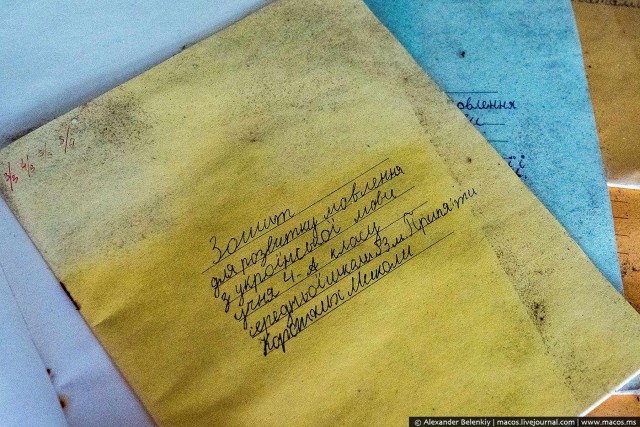 3/3 4/3 5/5 3/4
Зошит
для розвитку мовлення
з української мови
учня 4-А класу
середньої школи №3 м. Прип'яти
Коротких Миколи
мовлення
© Alexander Belenkiy | macos.livejournal.com | www.macos.ms